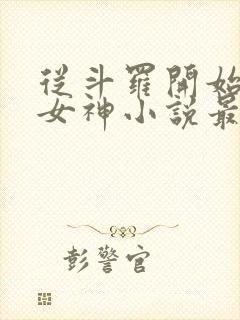 從斗羅開始
女神小說最
彭警官